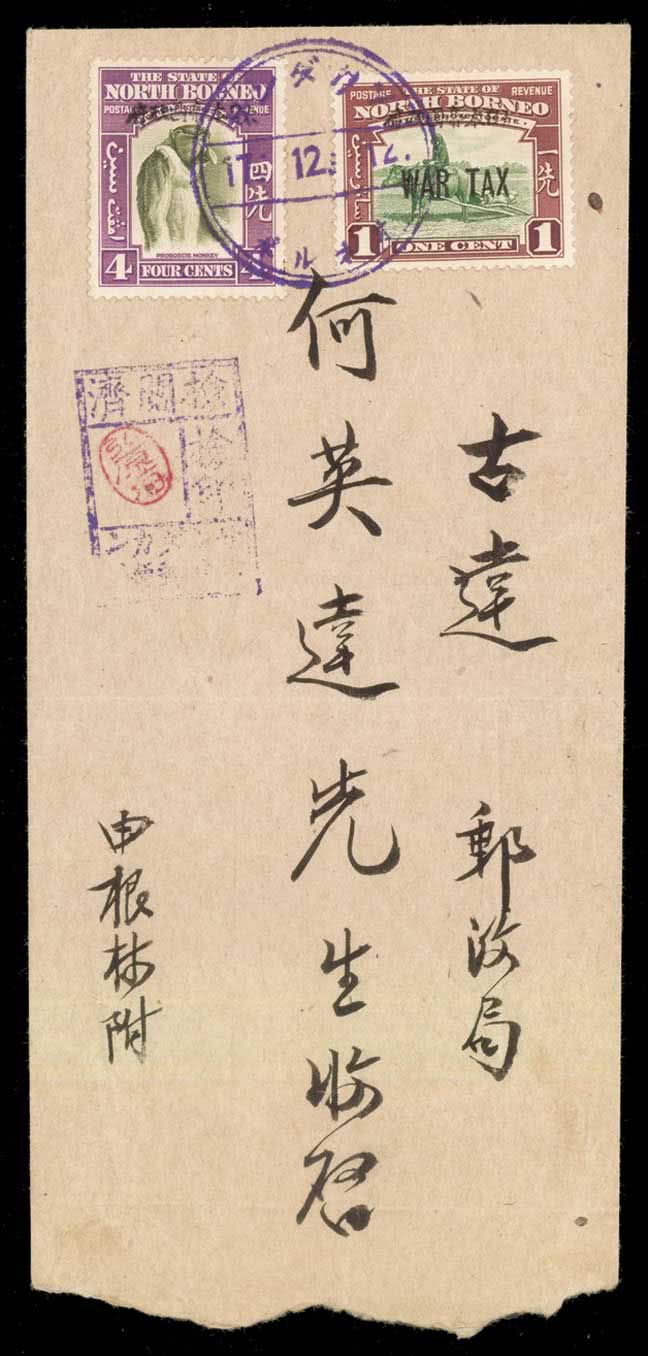 THE STATE OF
NORTH BORNEO
POSTAGE
四先
PROBOSCIS MONKEY
4 FOUR CENTS 4
POSTAGE THE STATE OF REVENUE
NORTH BORNEO
WAR TAX
一先
1 ONE CENT 1
ダカ
17. 12.
ボルネオ
檢閲濟
古達 郵政局
何英達先生收启
申根林附